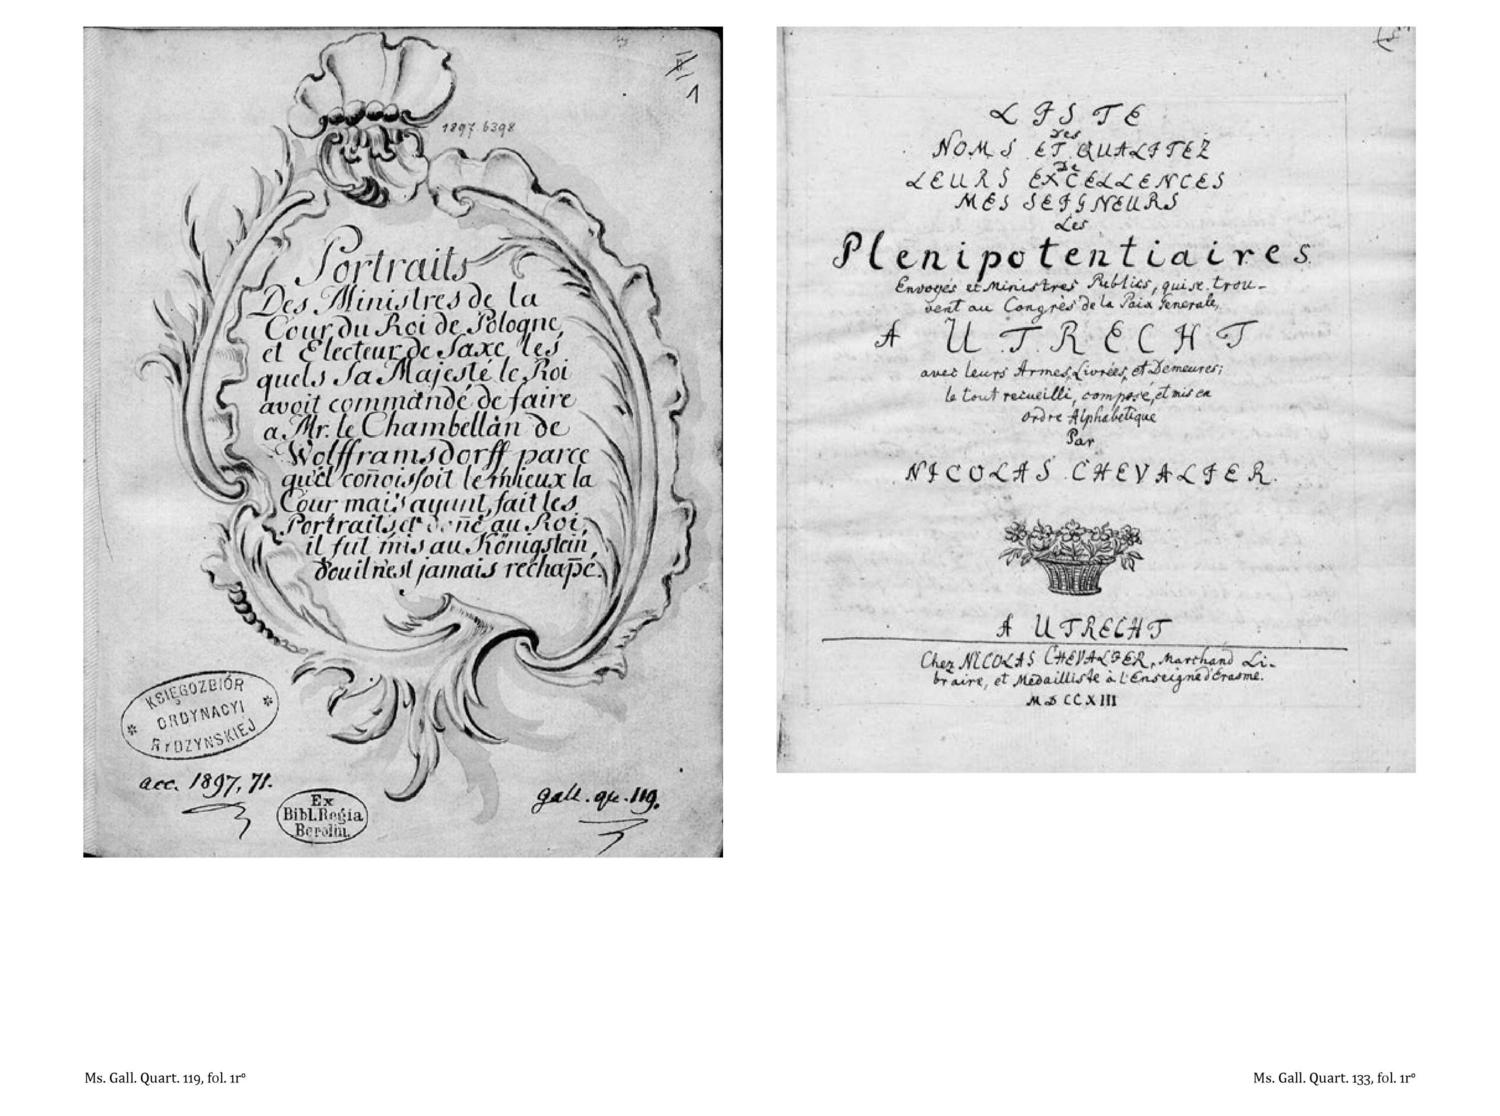 1
1897.6398
Portraits
Des Ministres de la
Cour du Roi de Pologne,
et Electeur de Saxe les
quels Sa Majesté le Roi
avoit commandé de faire
a Mr. le Chambellan de
Wolfframsdorff parce
qu'el coñoissoit le mhieux la
Cour mais ayant fait les
Portraits et doñé au Roi,
il fut mis au Königstein,
d'ou il n'est jamais rechapé.
KSIĘGOZBIÓR
ORDYNACYI
RYDZYNSKIEJ
acc. 1897, 71.
Ex
Bibl. Regia
Berolin.
gall. qu. 119.
LISTE
Des
NOMS ET QUALITEZ
De
LEURS EXCELLENCES
MES SEIGNEURS
Les
Plenipotentiaires
Envoyés et Ministres Publics, qui se trou-
vent au Congrès de la Paix Generale,
A UTRECHT
avec leurs Armes, Livrées, et Demeures;
le tout recueilli, composé, et mis en
ordre Alphabetique
Par
NICOLAS CHEVALIER.
A UTRECHT
Chez NICOLAS CHEVALIER, Marchand Li-
braire, et Medailliste à l'Enseigne d'Erasme.
MDCCXIII
Ms. Gall. Quart. 119, fol. 1rº
Ms. Gall. Quart. 133, fol. 1rº